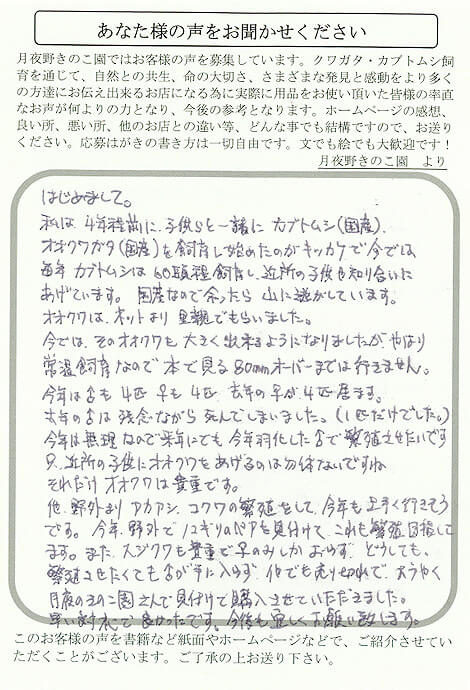 あなた様の声をお聞かせください
月夜野きのこ園ではお客様の声を募集しています。クワガタ・カブトムシ飼
育を通じて、自然との共生、命の大切さ、さまざまな発見と感動をより多く
の方達にお伝え出来るお店になる為に実際に用品をお使い頂いた皆様の率直
なお声が何よりの力となり、今後の参考となります。ホームページの感想、
良い所、悪い所、他のお店との違い等、どんな事でも結構ですので、お送り
ください。応募はがきの書き方は一切自由です。文でも絵でも大歓迎です！
月夜野きのこ園 より
はじめまして。
私は4年程前に、子供らと一諸に カブトムシ(国産)、
オオクワガタ(国産)を飼育し始めたのがキッカケで今では
毎年 カブトムシは60頭程飼育し、近所の子供や知り合いに
あげています。 国産なので余ったら 山に逃がしています。
オオクワは、ネットより 里親でもらいました。
今では、そのオオクワも 大きく出来るようになりましたがやはり
常温飼育なので 本で見る80mmオーバーまでは行きません。
今年は♂も4匹 ♀も4匹 去年の♀が4匹居ます。
去年の♂は 残念ながら 死んでしまいました。(1匹だけでした。)
今年は無理なので来年にでも 今年羽化した♂で繁殖させたいです
只、近所の子供にオオクワをあげるのは勿体ないですね
それだけ オオクワは 貴重です。
他、野外より アカアシ、コクワの繁殖をして、今年も上手く行きそう
です。 今年、野外で ノコギリのペアを見付けて、これも繁殖目指して
ます。また、ヒメオオも貴重で♀のみしか おらず、どうしても、
繁殖させたくても♂が手に入らず、他でも売り切れで、ようやく
月夜のきのこ園さんで見付けて購入させていただきました。
早い対応で良かったです。今後も宜しくお願い致します。
このお客様の声を書籍など紙面やホームページなどで、ご紹介させてい
ただくことがございます。ご了承の上お送り下さい。